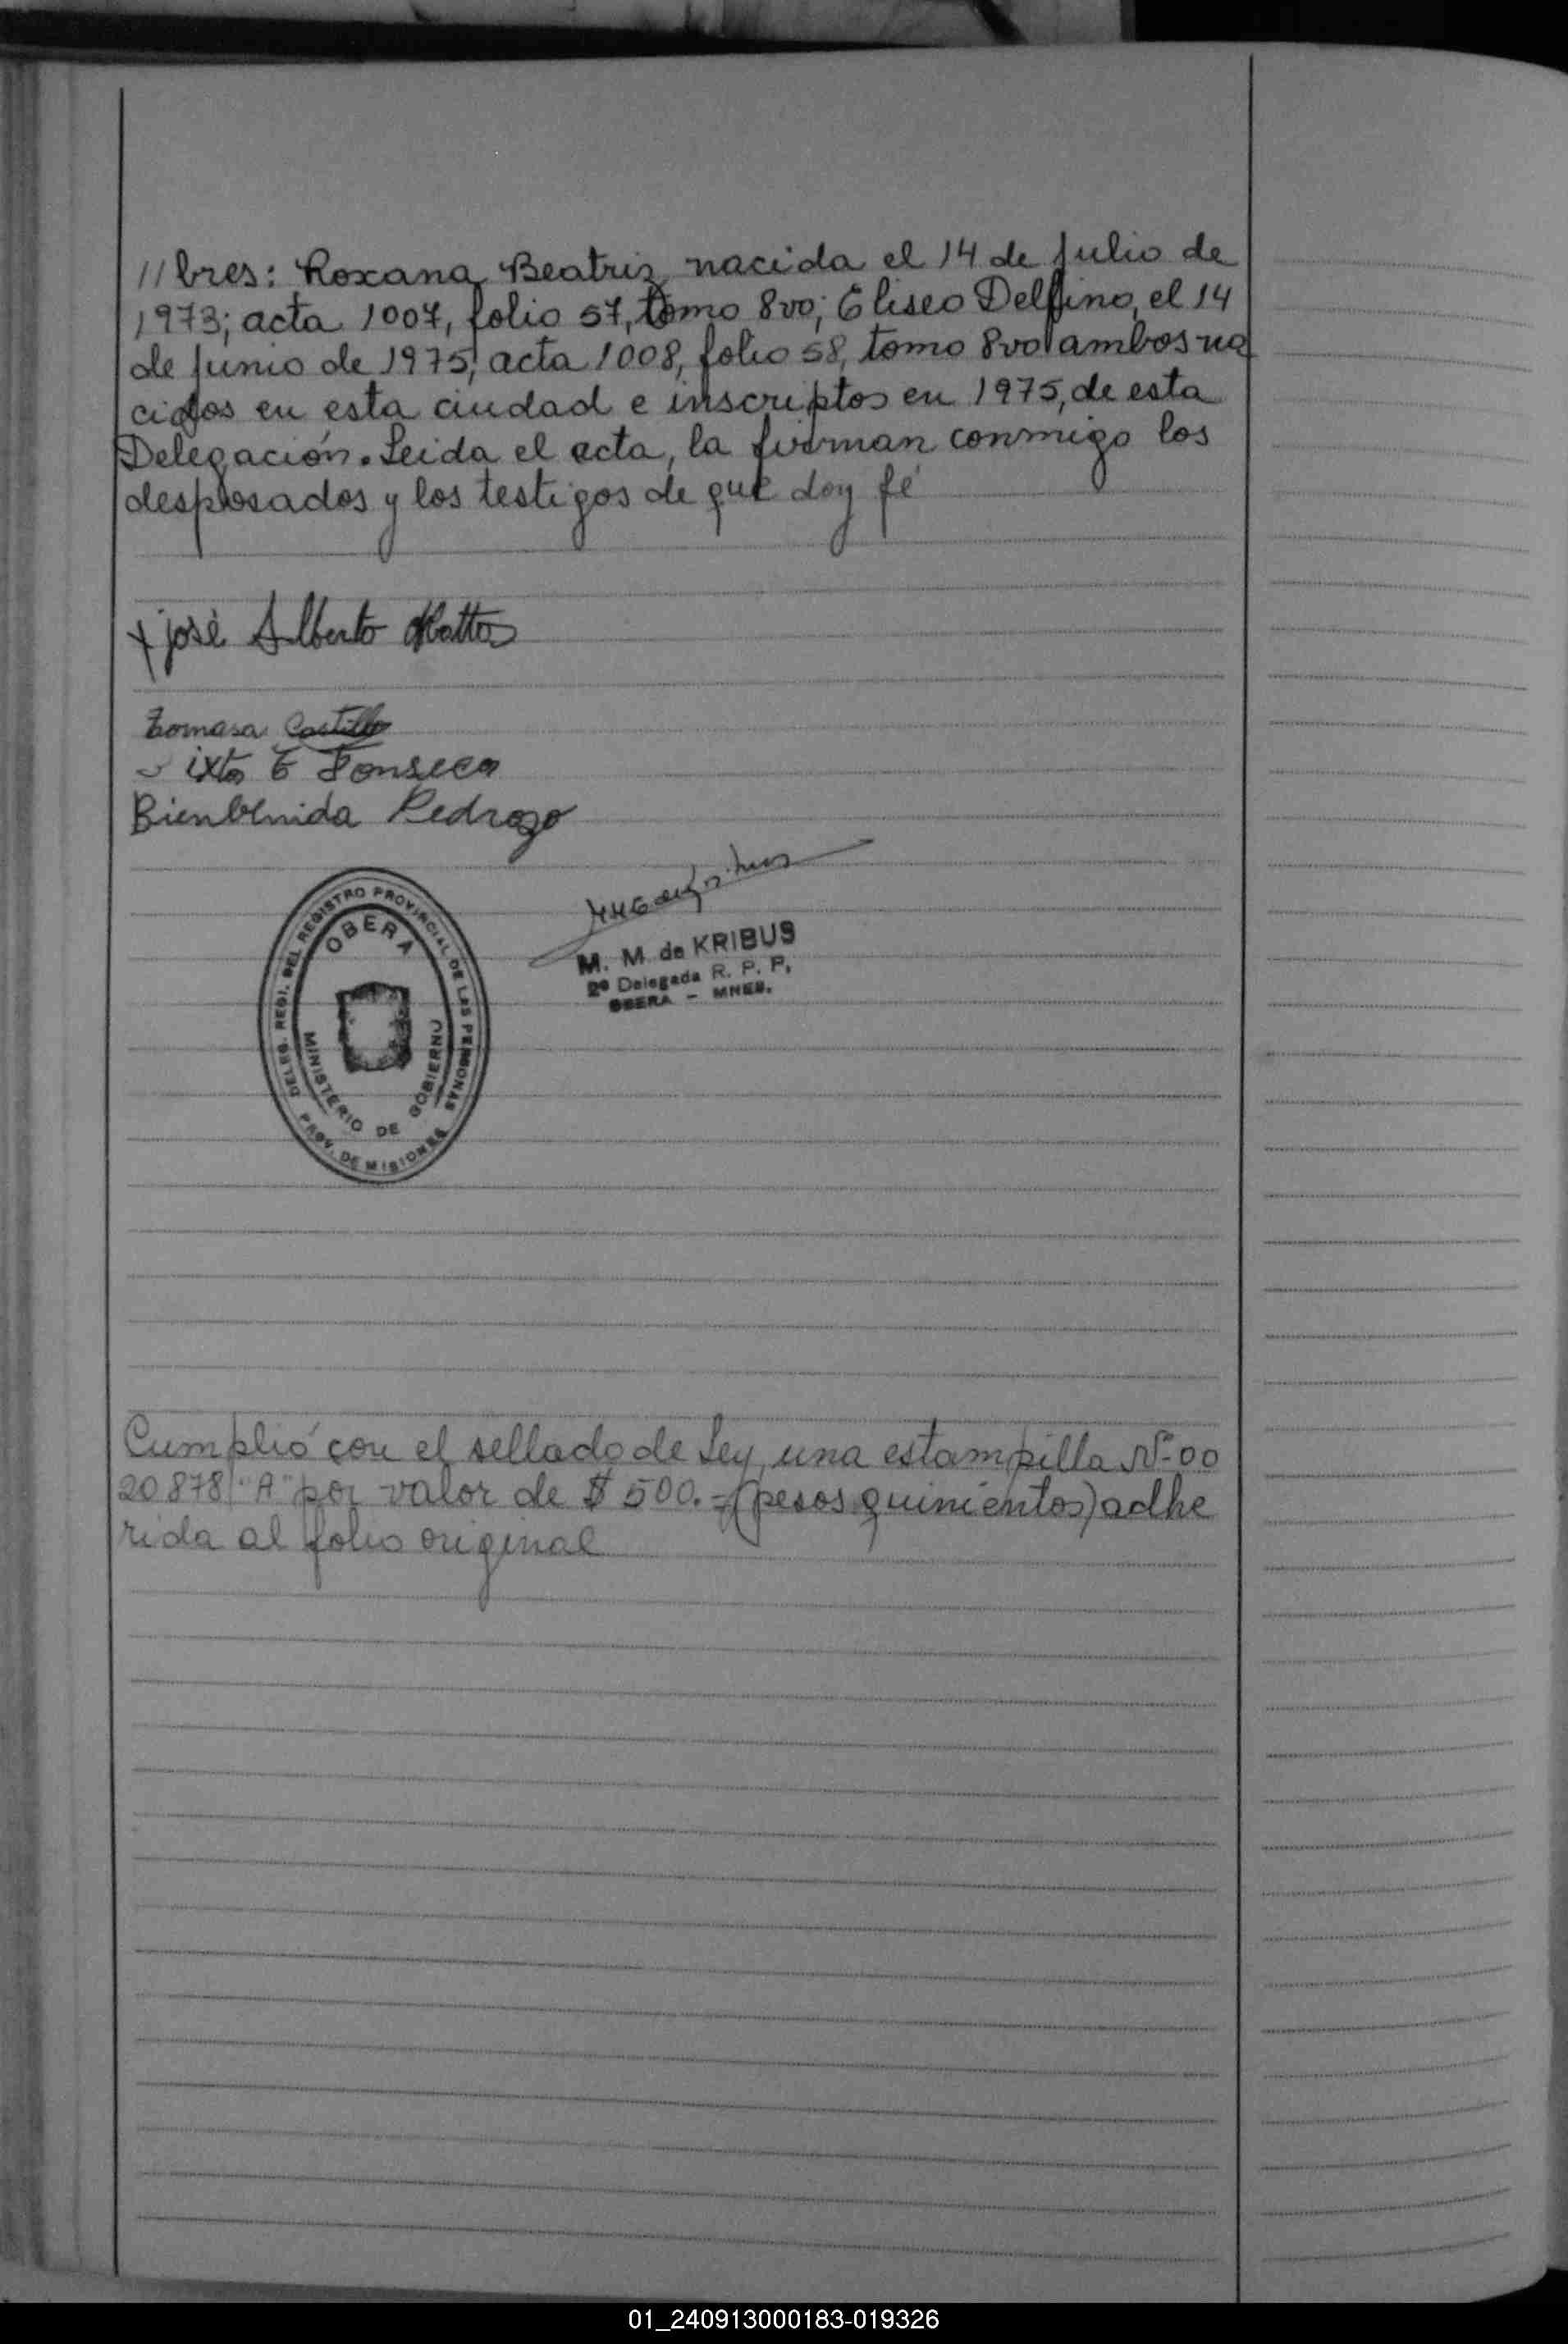 //bres: Roxana Beatriz nacida el 14 de Julio de
1973; acta 1007, folio 57, tomo 8vo; Eliseo Delfino, el 14
de Junio de 1975, acta 1008, folio 58, tomo 8vo ambos na
cidos en esta ciudad e inscriptos en 1975, de esta
Delegación. Leida el acta, la firman conmigo los
desposados y los testigos de que doy fé
x josè Alberto Mattos
Tomasa Castillo
Sixto E Fonseca
Bienbenida Pedrozo
DELEG. REGI. DEL REGISTRO PROVINCIAL DE LAS PERSONAS
OBERA
MINISTERIO DE GOBIERNO
PROV. DE MISIONES
M. M. de KRIBUS
2º Delegada R. P. P.
OBERA - MNES.
Cumplió con el sellado de Ley, una estampilla Nº 00
20878 "A" por valor de $ 500.= (pesos quinientos) adhe
rida al folio original
01_240913000183-019326